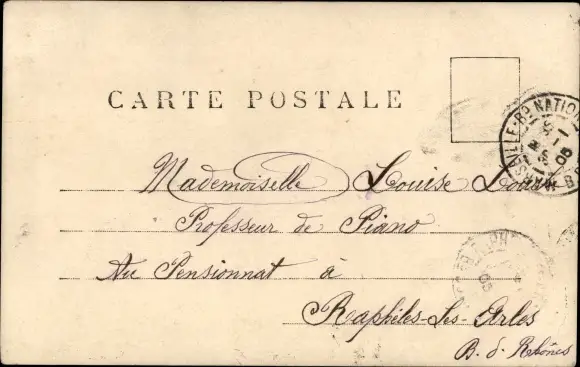 CARTE POSTALE
MARSEILLE-Bd NATIONAL
05
Mademoiselle Louise
Professeur de Piano
Au Pensionnat à
Raphèles-les-Arles
B. d. Rhônes